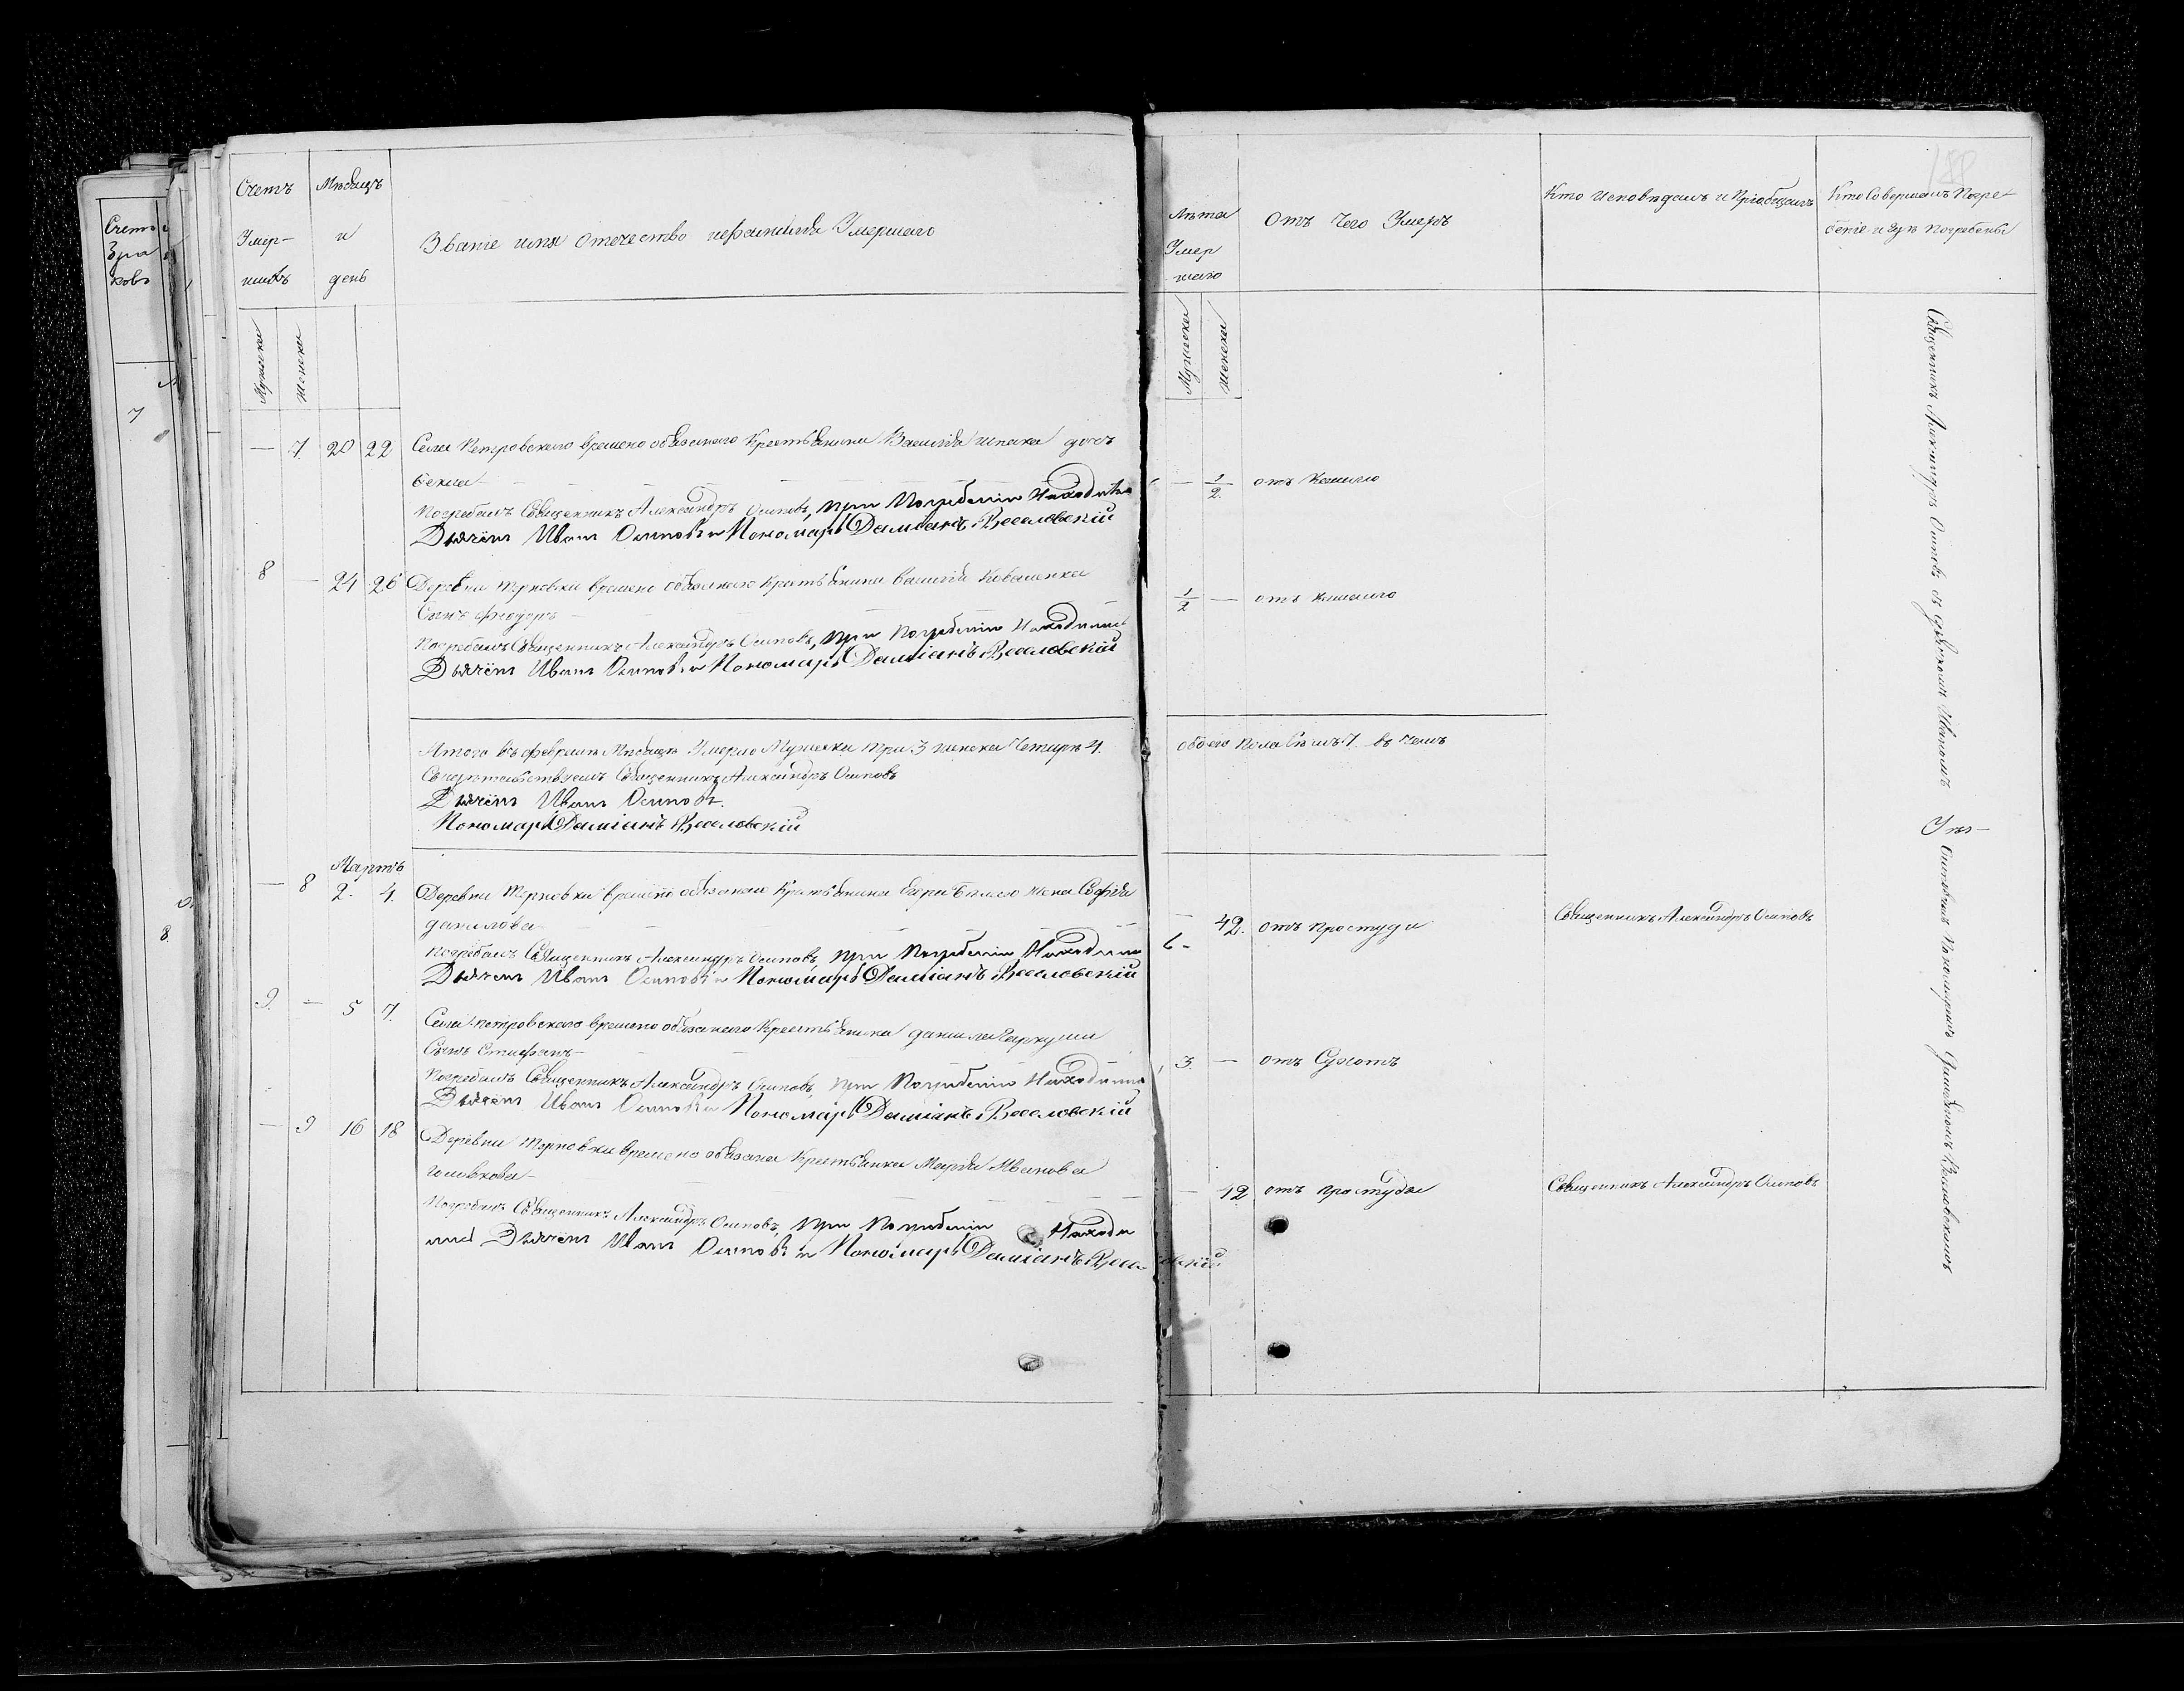 Счетъ
Умер-
шихъ
Мѣсяцъ
и
день
Званіе имя отечество и фамилія Умершаго
Мужеска
Женска
7. 20 22 Села Петровскаго временно обязанаго Крестьянина Василія дочь
Погребалъ Священникъ Александръ Осиповъ, при Погребеніи Находились
Дьячёкъ Иванъ Осиповъ и Пономарь Даміанъ Веселовскій
8 — 24 26 Деревни Терновки временно обязанаго Крестьянина Василія Коваленка
Сынъ Феодоръ —
Погребалъ Священникъ Александръ Осиповъ, при Погребеніи Находились
Дьячёкъ Иванъ Осиповъ и Пономарь Даміанъ Веселовскій
Итого въ февралѣ Мѣсяцѣ Умерло Мужеска три 3 женска Четыре 4.
Свидѣтельствуемъ Священникъ Александръ Осиповъ
Дьячёкъ Иванъ Осиповъ.
Пономарь Даміанъ Веселовскій
Мартъ
— 8 2. 4. Деревни Терновки временно обязанаго Крестьянина жена Софія
данилова
Погребалъ Священникъ Александръ Осиповъ, при Погребеніи Находились
Дьячекъ Иванъ Осиповъ и Пономарь Даміанъ Веселовскій
9. — 5 7. Села Петровскаго временно обязанаго Крестьянина данила Гаркуши
Сынъ Стефанъ —
Погребалъ Священникъ Александръ Осиповъ, при Погребеніи Находились
Дьячёкъ Иванъ Осиповъ и Пономарь Даміанъ Веселовскій
— 9 16 18 Деревни Терновки временно обязана Крестьянка Марія Иванова
Погребалъ Священникъ Александръ Осиповъ, при Погребеніи Находи
лись Дьячёкъ Иванъ Осиповъ и Пономарь Даміанъ Веселовскій
Лѣта
Умер
шаго
Отъ Чего Умеръ
Кто Исповѣдалъ и Пріобщалъ
Кто Совершалъ Погре
беніе и Гдѣ Погребены
Мужеска
Женска
— 1/2. отъ Кашлю
1/2 — отъ кашлю
обоего Пола 7. въ чемъ
42. отъ простуди
Священникъ Александръ Осиповъ
3. — отъ Сухотъ
— 12 отъ простуды
Священникъ Александръ Осиповъ
Священникъ Александръ Осиповъ съ дьячкомъ Иваномъ
Веселовскимъ
Счетъ
Бра
ковъ
7
8.